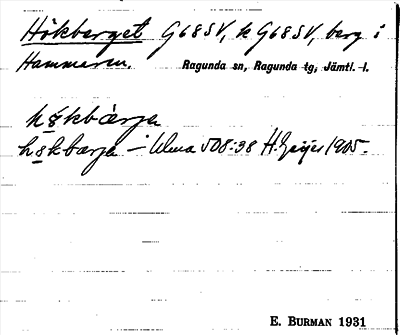 Hökberget G68SV, k G68SV, berg i
Hammaren. Ragunda sn, Ragunda tg, Jämtl. l.
hökbärja
hökbärja – Ulma 508:38 H. Geijer 1905.
E. BURMAN 1931